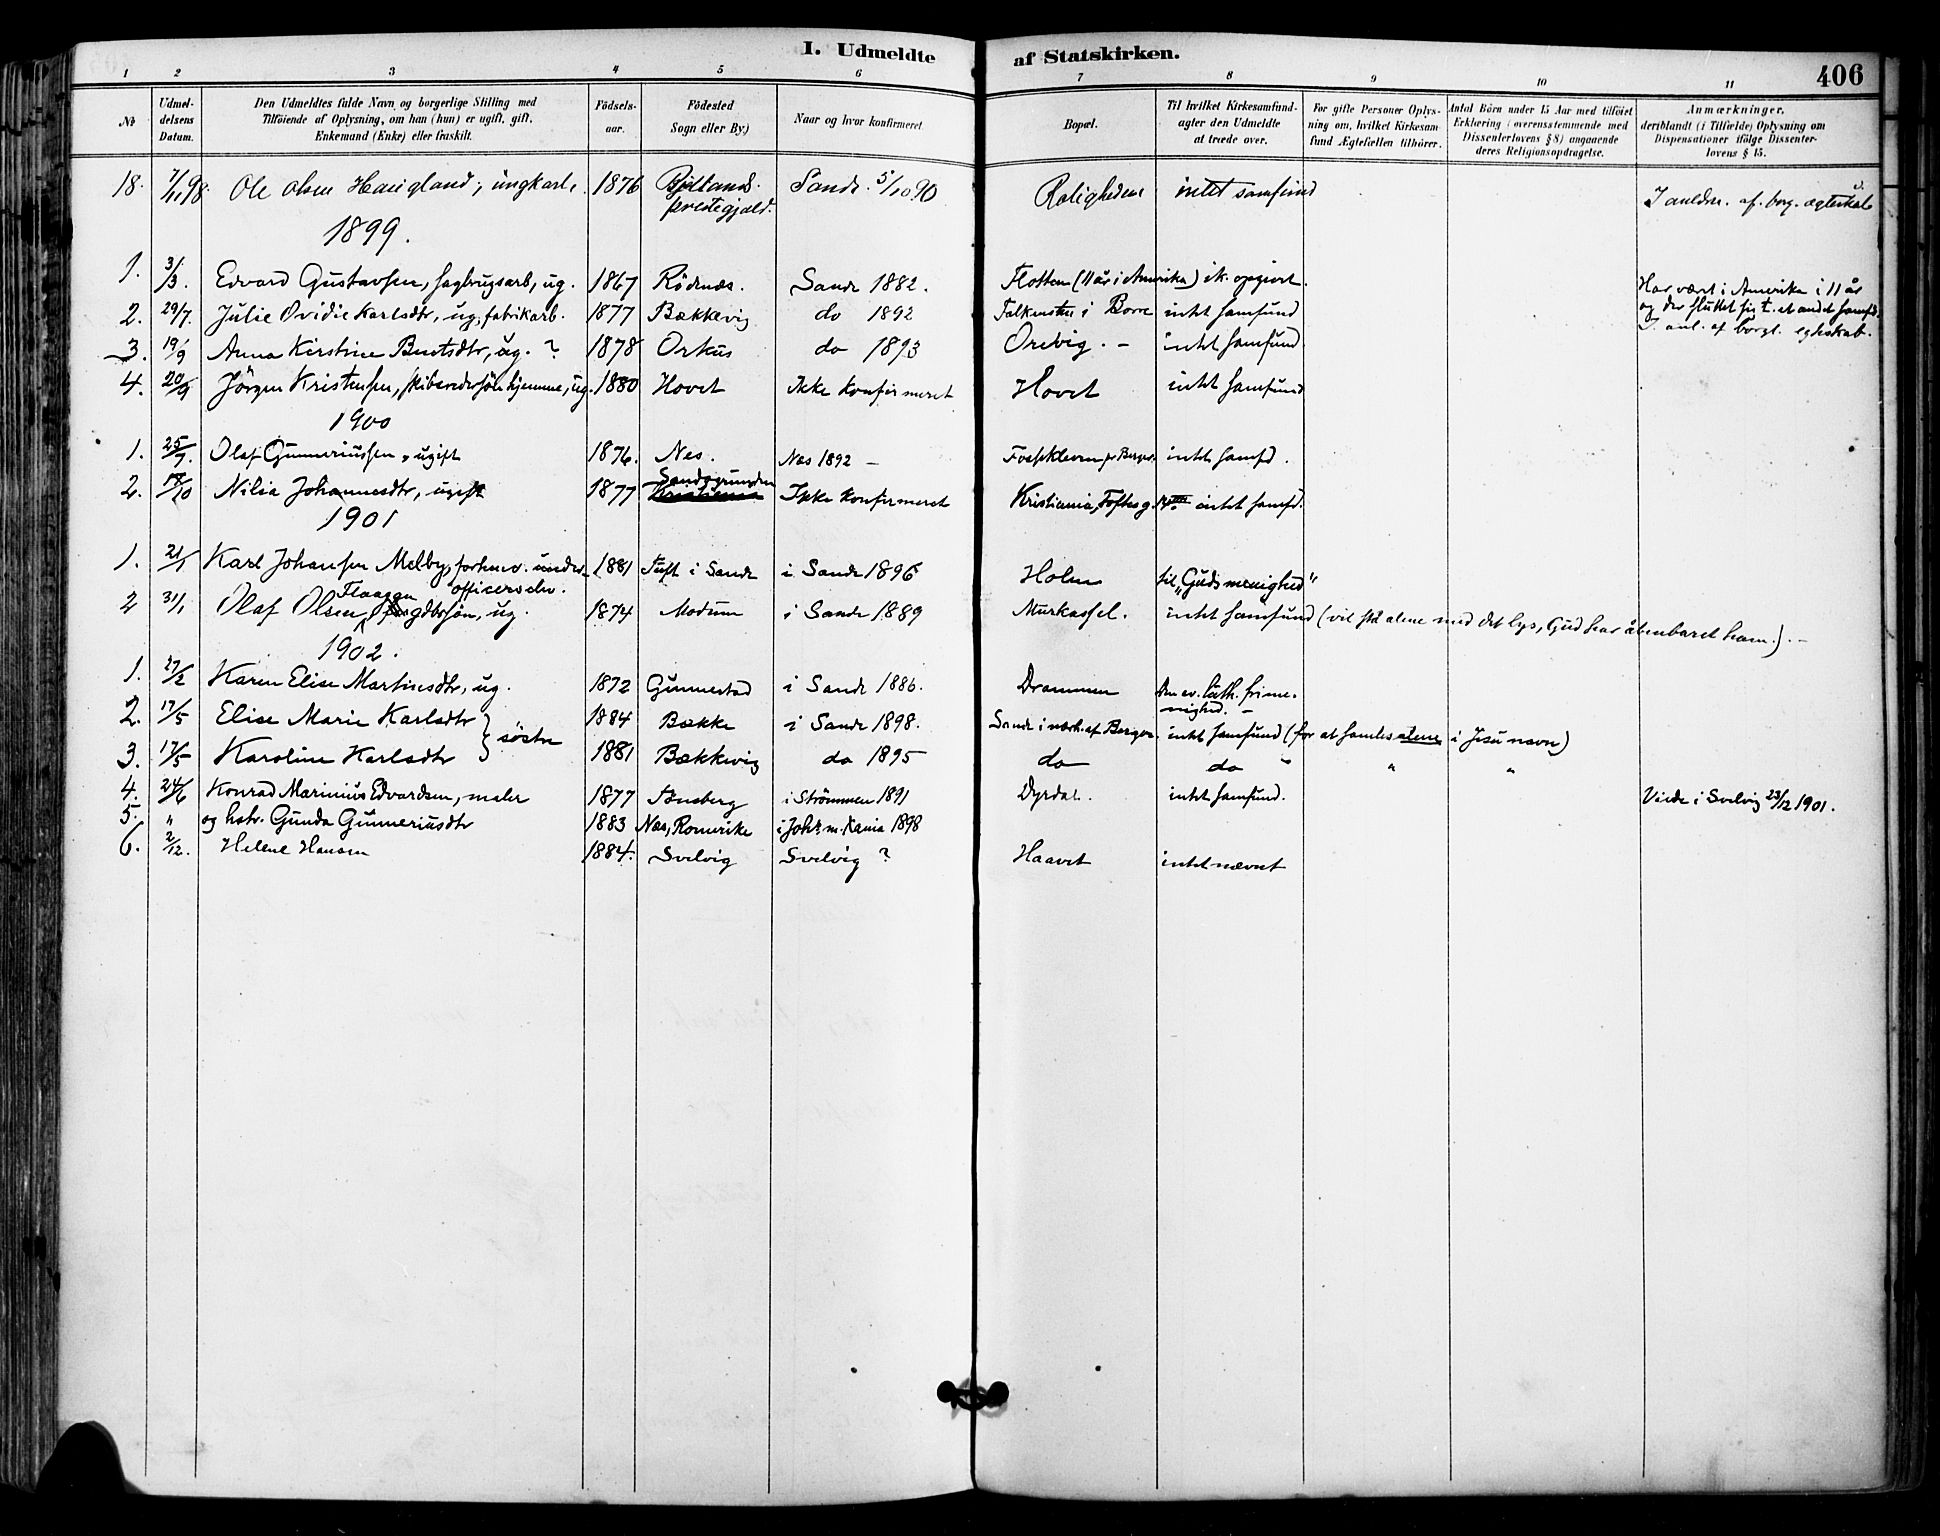 I. Udmeldte af Statskirken.
406
1 2 3 4 5 6 7 8 9 10 11
No
Udmeldelsens Datum.
Den Udmeldtes fulde Navn og borgerlige Stilling med
Tilføiende af Oplysning, om han (hun) er ugift, gift,
Enkemand (Enke) eller fraskilt.
Fødselsaar.
Fødested
Sogn eller By)
Naar og hvor konfirmeret.
Bopæl.
Til hvilket Kirkesamfund-
agter den Udmeldte
at træde over.
For gifte Personer Oplys-
ning om, hvilket Kirkesam-
fund Ægtefællen tilhører.
Antal Børn under 15 Aar med tilføiet
Erklæring (overensstemmende med
Dissenterlovens § 8) angaaende
deres Religionsopdragelse.
Anmærkninger,
deriblandt (i Tilfælde) Oplysning om
Dispensationer ifølge Dissenter-
lovens § 15.
18. 7/11 98 Ole Olsen Haugland, ungkarl, 1876 Bjellands prestegjæld. Sande 5/10 90 Roligheden intet samfund I anledn. af borg. ægteskab
1899.
1. 3/3. Edvard Gustavsen, sagbrugsarb, ug. 1867 Rödenæs. Sande 1882. Flotten (11 år i Amerika) ik. opgivet. Har vært i Amerika i 11 år
og der sluttet sig t. et andet samfd.
2. 29/7. Julie Ovidie Karlsdtr, ug, fabrikarb. 1877 Bækkevig do 1892 Falkensten i Borre intet samfund I anl. af borgl. egteskab.
3. 19/9 Anna Kirstine Berntsdtr, ug. ? 1878 Orkus do 1893 Orevig. - intet samfund.
4. 20/9 Jörgen Kristensen, skibsredersön hjemme, ug. 1880 Hovet Ikke konfirmeret Hovet intet samfund
1900
1. 25/7. Olaf Gunneriussen, ugift 1876. Nes. Nes 1892 - Fossekleven pr Berger. intet samfd.
2. 18/10 Nilia Johannesdtr, ugift 1877 Sandsgrunden Ikke konfirmeret Kristiania, Toftes g. intet samfd.
1901
1. 21/1 Karl Johansen Melby, forhenv. underofficerselev. 1881 Tuft i Sande i Sande 1896 Holm til "Guds menighed"
2 31/1 Olaf Olsen Flaagen, ug. 1874 Modum i Sande 1889 Murkassel. intet samfund (vil stå alene med det lys, Gud har åbenbaret ham.). -
1902.
1. 27/2 Karen Elise Martinsdtr, ug. 1872 Gunnestad i Sande 1886. Drammen den ev. luth. frimenighed. -
2. 17/5 Elise Marie Karlsdtr } søstre 1884 Bække i Sande 1898. Sande i nærh. af Berger. intet samfund (for at samles alene i Jesu navn)
3. 17/5 Karoline Karlsdtr 1881 Bækkevig do 1895 do do " " "
4. 24/6 Konrad Marinius Edvardsen, maler 1877 Tunsberg i Strömmen 1891 Dyrdal. intet samfund. Viede i Svelvig 23/12 1901.
5. " og hstr. Gunda Gunneriusdtr 1883 Nes, Romerike i Johs. m. Kania 1898
6. 2/12. Helene Hansen 1884. Svelvig Svelvig ? Haavet intet nævnt